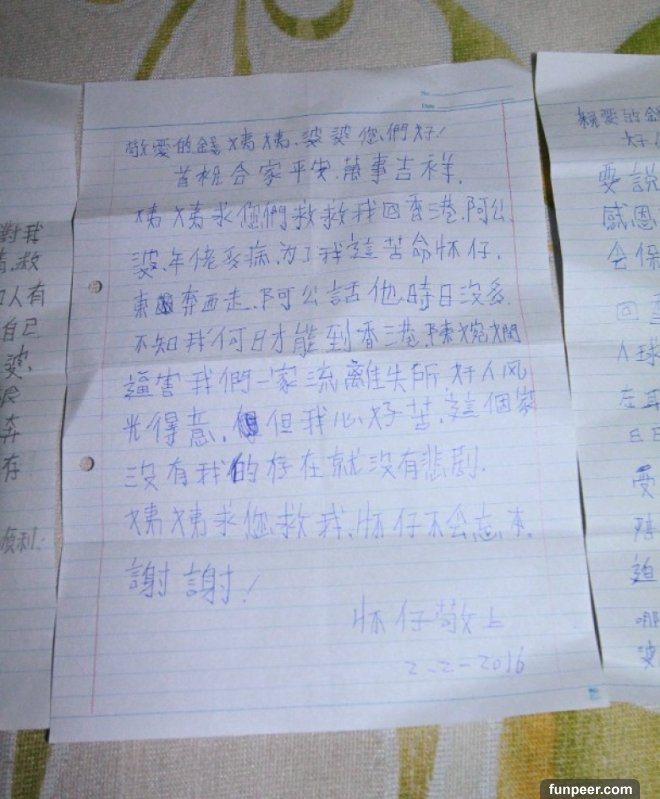 對我
救
人有
自己
婆
奔
存
No.
Date
敬愛的錢姨姨、婆婆您們好!
首祝合家平安,萬事吉祥。
姨姨求您們救救我回香港,阿公
婆年佬多病,为了我這苦命怀仔,
東奔西走,阿公話他時日没多,
不知我何日才能到香港,陳婉嫻
逼害我們一家流離失所,奸人风
光得意,但我心好苦,這個家
沒有我的存在就沒有悲劇。
姨姨求您救我,怀仔不会忘本。
謝謝!
怀仔敬上
2-2-2016
親愛的錢
好!
要説
感恩
会保
回
人球
左耳
日日
受
陪
迫
哪
婆
funpeer.com